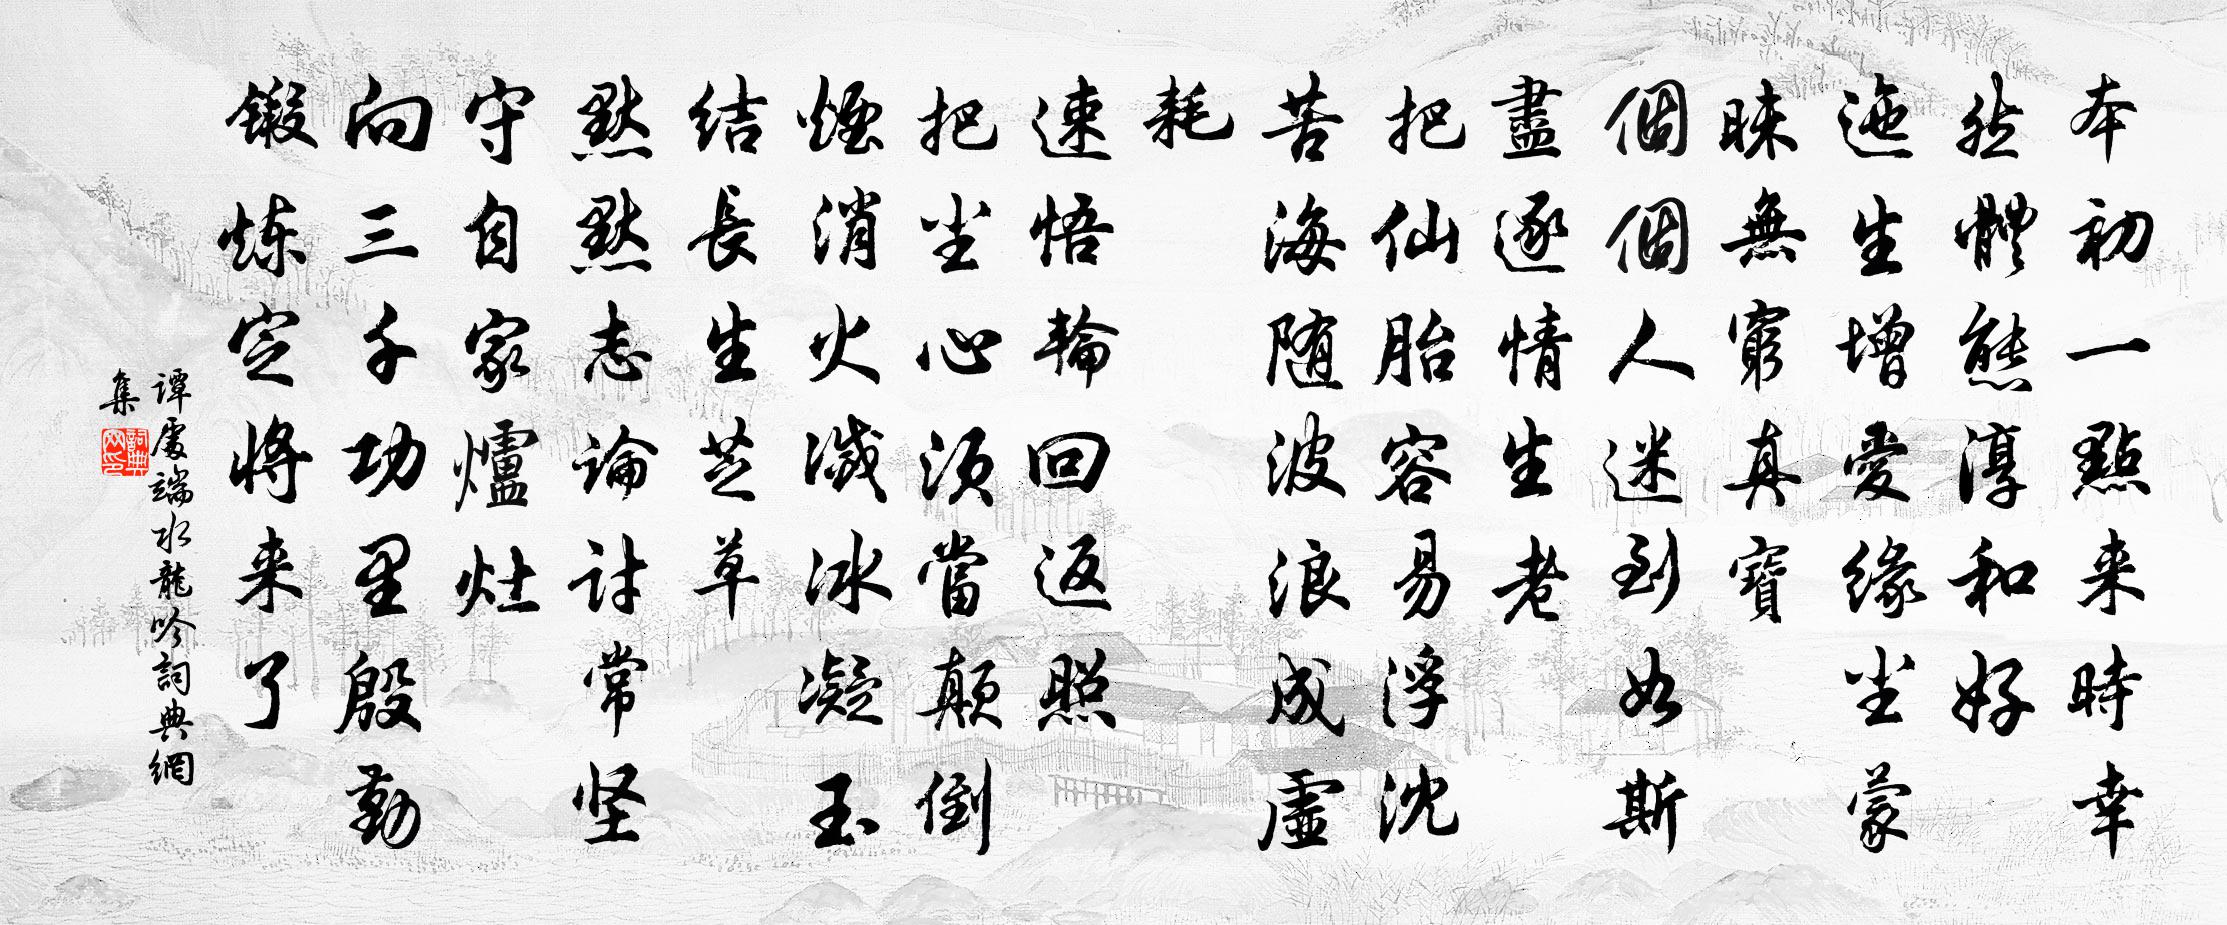 本初一點来時幸
然體態淳和好
迤生增愛緣尘蒙
睐無窮真寶
個個人迷到如斯
盡逐情生老
把仙胎容易浮沈
苦海随波浪成虛
耗
速悟輪回返照
把尘心須當颠倒
煙消火滅冰凝玉
结長生芝草
黙黙志論討常坚
守自家爐灶
向三千功里殷勤
锻炼定将来了
谭處端水龍吟詞典網
集
詞典網印